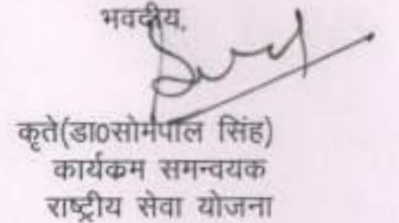 भवदीय,
कृते(डा0सोमपाल सिंह)
कार्यक्रम समन्वयक
राष्ट्रीय सेवा योजना